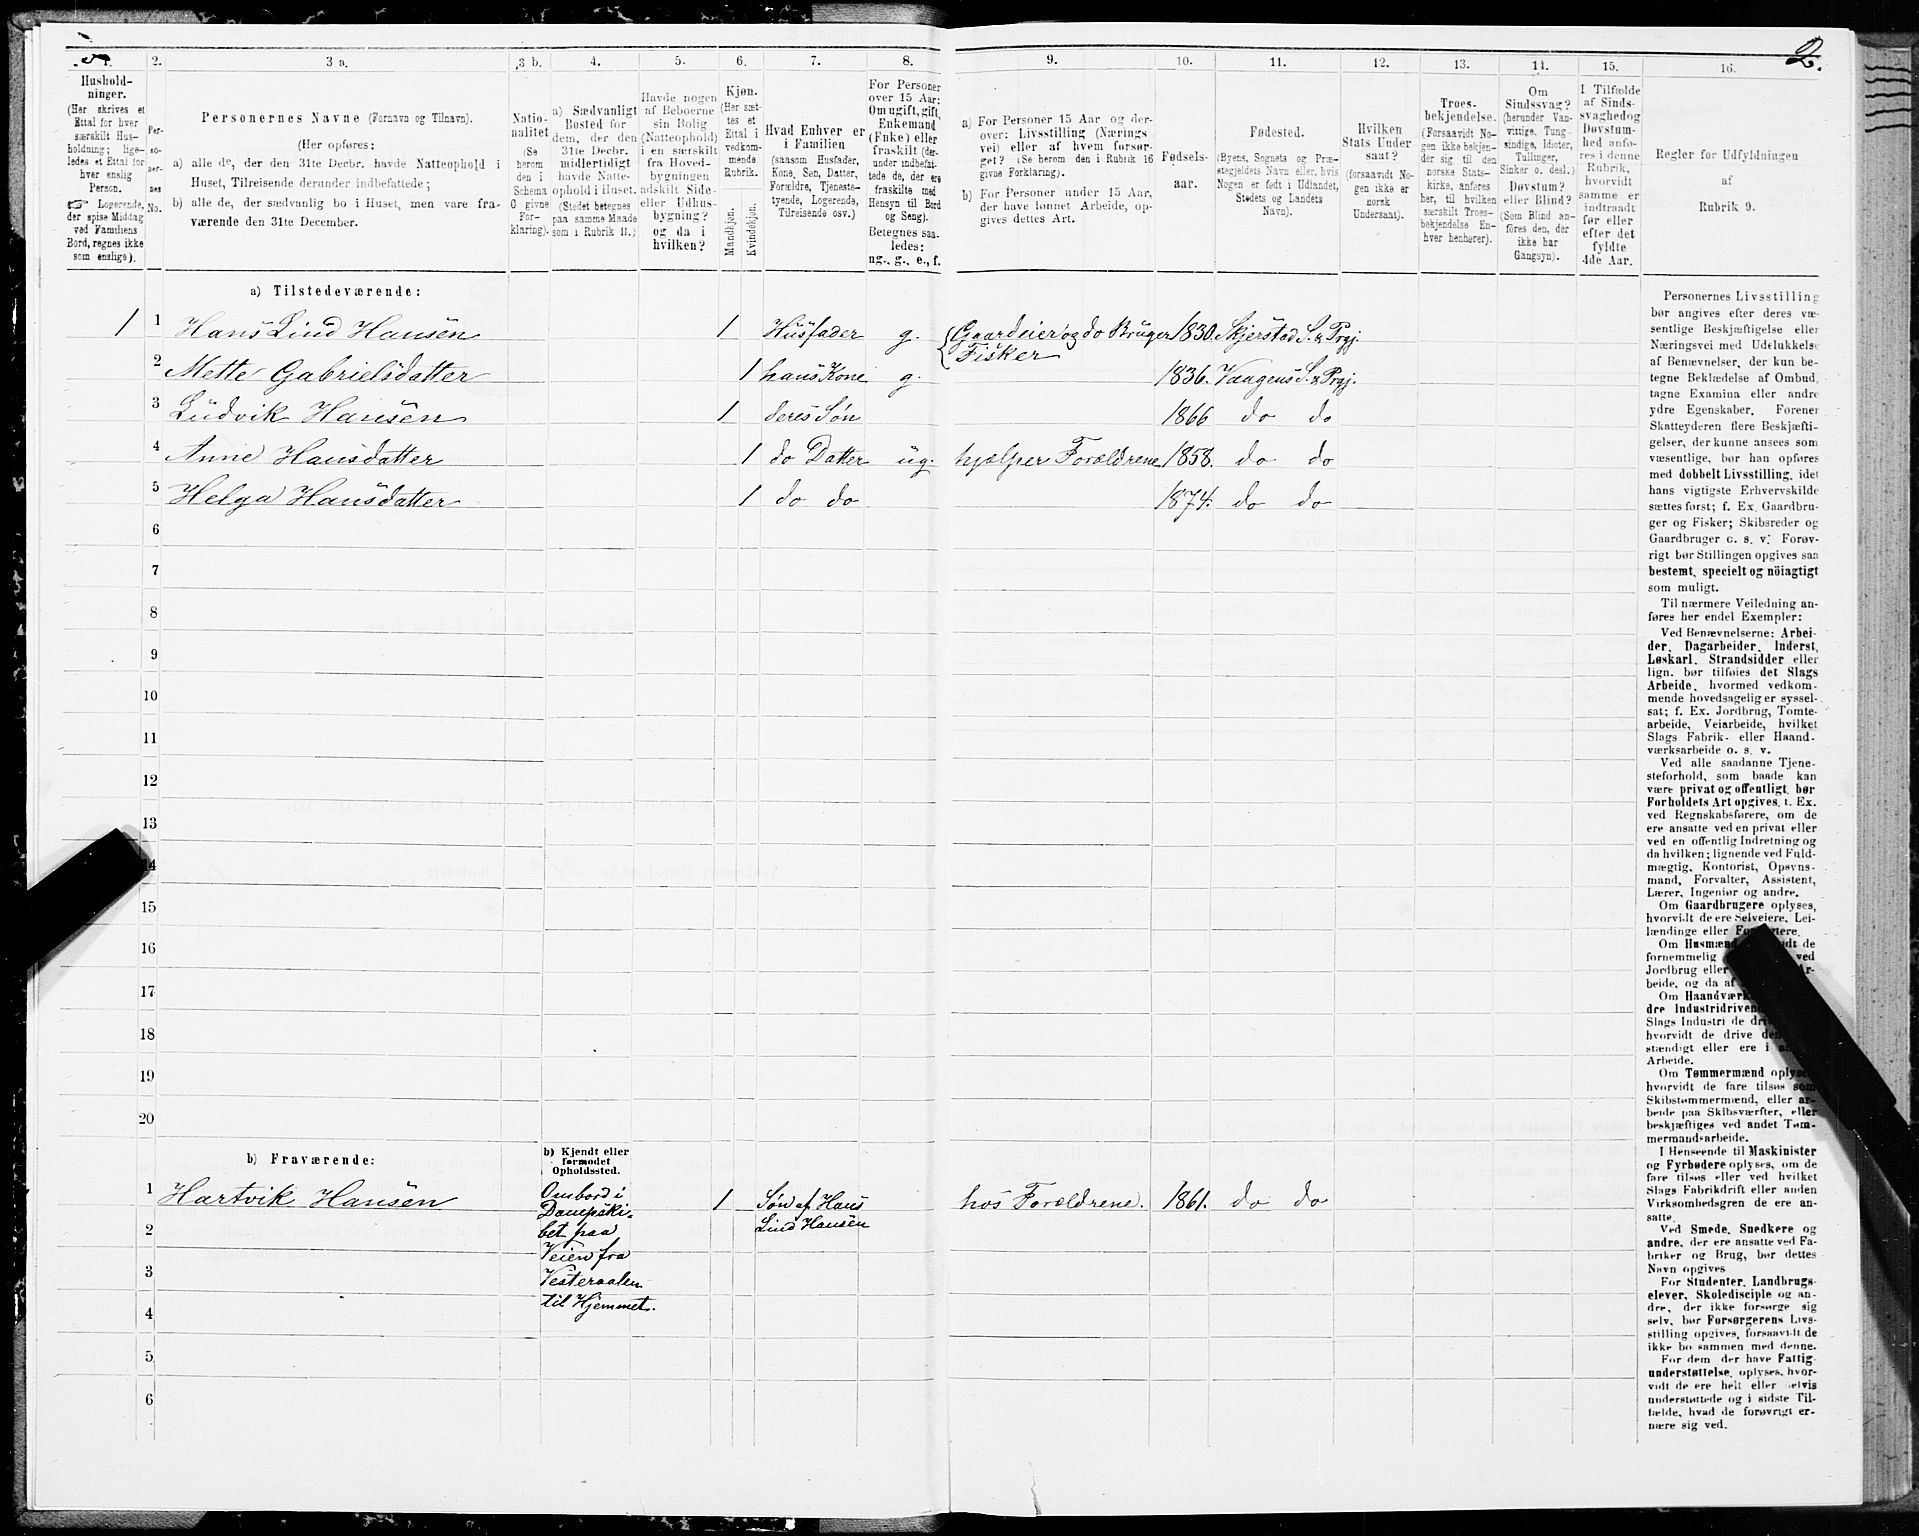 2.
1. 2. 3 a. 3 b. 4. 5. 6. 7. 8. 9. 10. 11. 12. 13. 14. 15. 16.
Hushold-
ninger.
(Her skrives et
Ettal for hver
særskilt Hus-
holdning; lige-
ledes et Ettal for
hver enslig
Person.
☞ Logerende,
der spise Middag
ved Familiens
Bord, regnes ikke
som enslige).
Per-
so-
ner-
nes
No.
Personernes Navne (Fornavn og Tilnavn).
(Her opføres:
a) alle de, der den 31te Decbr. havde Natteophold i
Huset, Tilreisende derunder indbefattede;
b) alle de, der sædvanlig bo i Huset, men vare fra-
værende den 31te December.
Natio-
nalitet
(Se
herom
den i
Schema
O givne
For-
klaring).
a) Sædvanligt
Bosted for
dem, der den
31te Decbr.
midlertidigt
havde Natte-
ophold i Huset.
(Stedet betegnes
paa samme Maade
som i Rubrik 11.)
Havde nogen
af Beboerne
sin Bolig
(Natteophold)
i en særskilt
fra Hoved-
bygningen
adskilt Side-
eller Udhus-
bygning?
og da i
hvilken?
Kjøn.
(Her sæt-
tes et
Ettal i
vedkom-
mende
Rubrik.
Mandkjøn.
Kvindekjøn.
Hvad Enhver er
i Familien
(saasom Husfader,
Kone, Søn, Datter,
Forældre, Tjeneste-
tyende, Logerende,
Tilreisende osv.)
For Personer
over 15 Aar:
Om ugift, gift,
Enkemand
(Enke) eller
fraskilt (der-
under indbefat-
tede de, der ere
fraskilte med
Hensyn til Bord
og Seng).
Betegnes saa-
ledes:
ug., g., e., f.
a) For Personer 15 Aar og der-
over: Livsstilling (Nærings
vei) eller af hvem forsør-
get? (Se herom den i Rubrik 16
givne Forklaring).
b) For Personer under 15 Aar,
der have lønnet Arbeide, op-
gives dettes Art.
Fødsels-
aar.
Fødested.
(Byens, Sognets og Præ-
stegjeldets Navn eller, hvis
Nogen er født i Udlandet,
Stedets og Landets
Navn).
Hvilken
Stats Under
saat?
(forsaavidt No-
gen ikke er
norsk
Undersaat).
Troes-
bekjendelse.
(Forsaavidt No-
gen ikke bekjen-
der sig til den
norske Stats-
kirke, anføres
her, til hvilken
særskilt Troes-
bekjendelse En-
hver henhører).
Om
Sindssvag?
(herunder Van-
vittige, Tung-
sindige, Idioter,
Tullinger,
Sinker o. desl.)
Døvstum?
eller Blind?
(Som Blind an-
føres den, der
ikke har
Gangsyn).
I Tilfælde
af Sinds-
svaghed og
Døvstum-
hed anfø-
res i denne
Rubrik,
hvorvidt
samme er
indtraadt
før eller
efter det
fyldte
4de Aar.
Regler for Udfyldningen
af
Rubrik 9.
a) Tilstedeværende:
1 1 Hans Lind Hansen 1 Husfader g. Gaardeier og do Bruger 1830. Skjerstad S. & Prgj.
Fisker
2 Mette Gabrielsdatter 1 hans Kone g. 1836. Vaagens S. & Prgj.
3 Ludvik Hansen 1 deres Søn 1866 do do
4 Anne Hansdatter 1 do Datter ug. hjælper Forældrene 1858. do do
5 Helga Hansdatter 1 do do 1874. do do
6
7
8
9
10
11
12
13
14
15
16
17
18
19
20
b) Fraværende:
b) Kjendt eller
formodet
Opholdssted.
1 Hartvik Hansen Ombord i 1 Søn af Hans hos Forældrene. 1861. do do
Dampski-
2 bet paa Lind Hansen
Veien fra
3 Vesteraalen
4 til Hjemmet.
5
6
Personernes Livsstilling
bør angives efter deres væ-
sentlige Beskjæftigelse eller
Næringsvei med Udelukkelse
af Benævnelser, der kun be-
tegne Beklædelse af Ombud,
tagne Examina eller andre
ydre Egenskaber. Forener
Skatteyderen flere Beskjæfti-
gelser, der kunne ansees som
væsentlige, bør han opføres
med dobbelt Livsstilling, idet
hans vigtigste Erhvervskilde
sættes først; f. Ex. Gaardbru-
ger og Fisker; Skibsreder og
Gaardbruger o. s. v. Forøv-
rigt bør Stillingen opgives saa
bestemt, specielt og nöiagtigt
som muligt.
Til nærmere Veiledning an-
føres her endel Exempler:
Ved Benævnelserne: Arbei-
der, Dagarbeider, Inderst,
Løskarl, Strandsidder eller
lign. bør tilføies det Slags
Arbeide, hvormed vedkom-
mende hovedsagelig er syssel-
sat; f. Ex. Jordbrug, Tomte-
arbeide, Veiarbeide, hvilket
Slags Fabrik- eller Haand-
værksarbeide o. s. v.
Ved alle saadanne Tjene-
steforhold, som baade kan
være privat og offentligt, bør
Forholdets Art opgives, t. Ex.
ved Regnskabsførere, om de
ere ansatte ved en privat eller
ved en offentlig Indretning og
da hvilken; lignende ved Fuld-
mægtig, Kontorist, Opsyns-
mand, Forvalter, Assistent,
Lærer, Ingeniør og andre.
Om Gaardbrugere oplyses,
hvorvidt de ere Selveiere, Lei-
lændinge eller
Om Husmænd de
fornemmelig ved
Jordbrug eller
beide, og da af
Om
dre
Slags Industri de
hvorvidt de drive
stændigt eller ere i
Arbeide.
Om Tømmermænd oplyses,
hvorvidt de fare tilsøs som
Skibstømmermænd, eller ar-
beide paa Skibsværfter, eller
beskjæftiges ved andet Tøm-
mermandsarbeide.
I Henseende til Maskinister
og Fyrbødere oplyses, om de
fare tilsøs eller ved hvilket
Slags Fabrikdrift eller anden
Virksomhedsgren de ere an-
satte.
Ved Smede, Snedkere og
andre, der ere ansatte ved Fa-
briker og Brug, bør dettes
Navn opgives
For Studenter, Landbrugs-
elever, Skoledisciple og an-
dre, der ikke forsørge sig
selv, bør Forsørgerens Livs-
stilling opgives, forsaavidt de
ikke bo sammen med denne.
For dem der have Fattig-
understøttelse, oplyses, hvor-
vidt de ere helt eller delvis
understøttede og i sidste Til-
fælde, hvad de forøvrigt er-
nære sig ved.